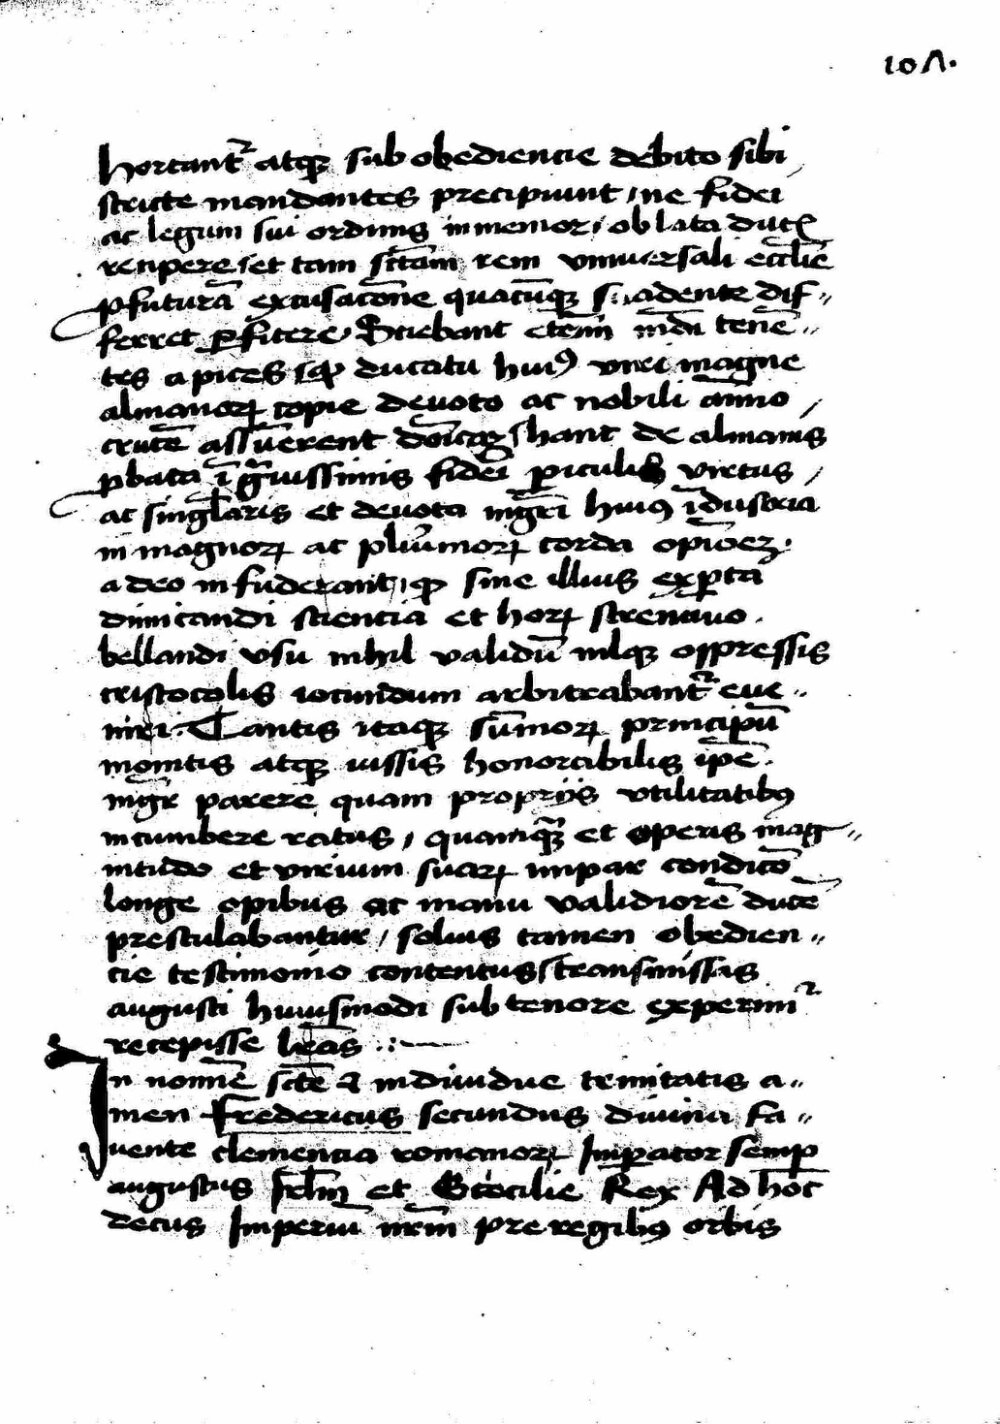 10Λ.
hortantᷣ atqꝫ sub obediencie debito sibi
stricte mandantes precipiunt / ne fidei
ac legum sui ordinis inmemor / oblata ducꝭ
recipere / et tam sctām rem vniuersali eccliē
ꝓfuturā excusacōne quacūqꝫ suadente dif-
ferret ꝑficere / Sciebant etem̄ mūdi tenē-
tes apices / qꝫ ducatu huiꝰ viri magne
almanoꝝ copie deuoto ac nobili animo /
crucē assūerent dn̄icaꝫ / hanc de almanis
ꝓbata ī gͣuissimis fidei piculis virtus /
ac singłaris et deuota mgr̄i huiꝰ īdustria
in magnoꝝ ac plurimoꝝ corda opioēꝫ
adeo infuderant / qꝫ sine illius exꝑta
dimicandi sciencia et hoꝝ strenuo
bellandi vsu nihil validū nilqꝫ oppressis
cristocolis iocundum arbitrabantᷣ eue-
niri. Tantis itaqꝫ sūmoꝝ principū
monitis atqꝫ iussis honorabilis ip̄e
mgr̄ parere quam proprijs vtilitatibꝰ
incumbere ratus / quamqꝫ et operis mag-
nitudo et virium suaꝝ impar condicō
longe opibus ac manu validiorē ducē
prestulabantur / solius tamen obedien-
cie testimonio contentus / transmissas
augusti huiusmodi sub tenore experimᷣ
recepisse lr̄as
In nomīe scte ⁊ indiuidue trinitatis a-
men Fredericus secundus diuina fa-
uente clemencia romanoꝝ Imꝑator semꝑ
augustus Jrłm et Sicilie Rex Ad hoc
decus Imperiū nr̄m pre regibꝰ orbis